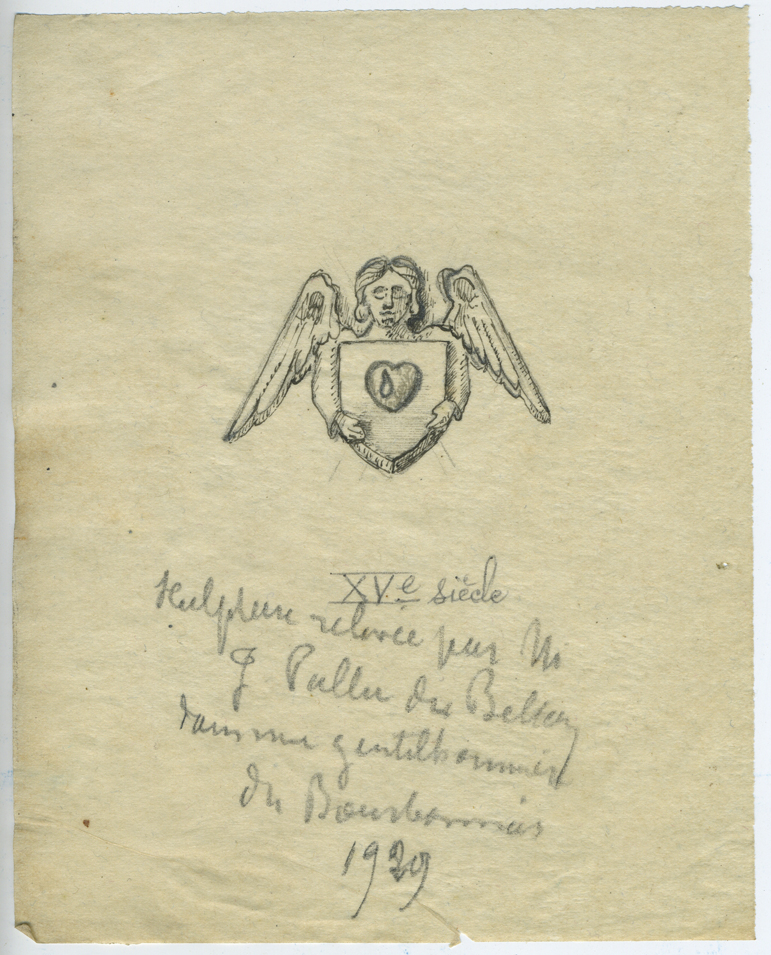 XVe siècle
Sculpture relevée par M
J Pallu du Bellay
dans une gentilhommière
du Bourbonnais
1929